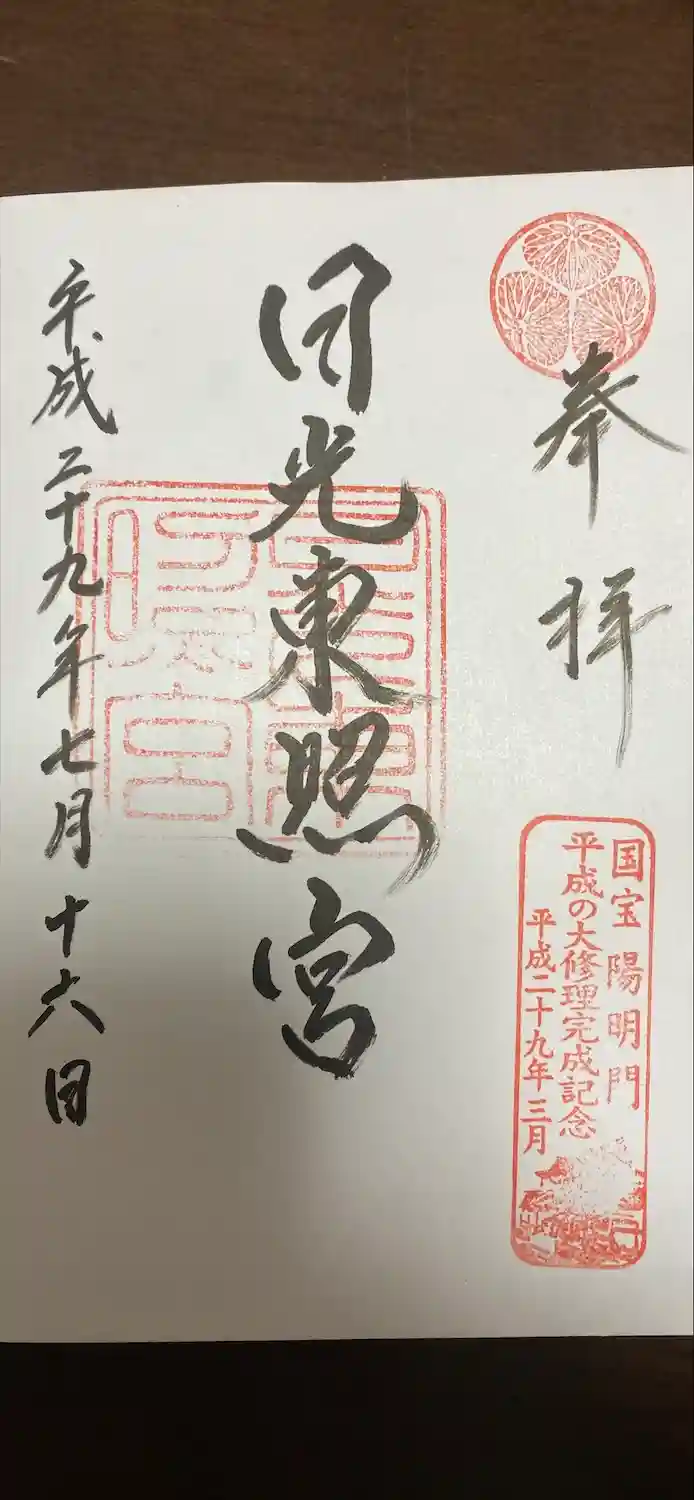 奉拝
国宝 陽明門
平成の大修理完成記念
平成二十九年三月
日光東照宮
平成二十九年七月十六日